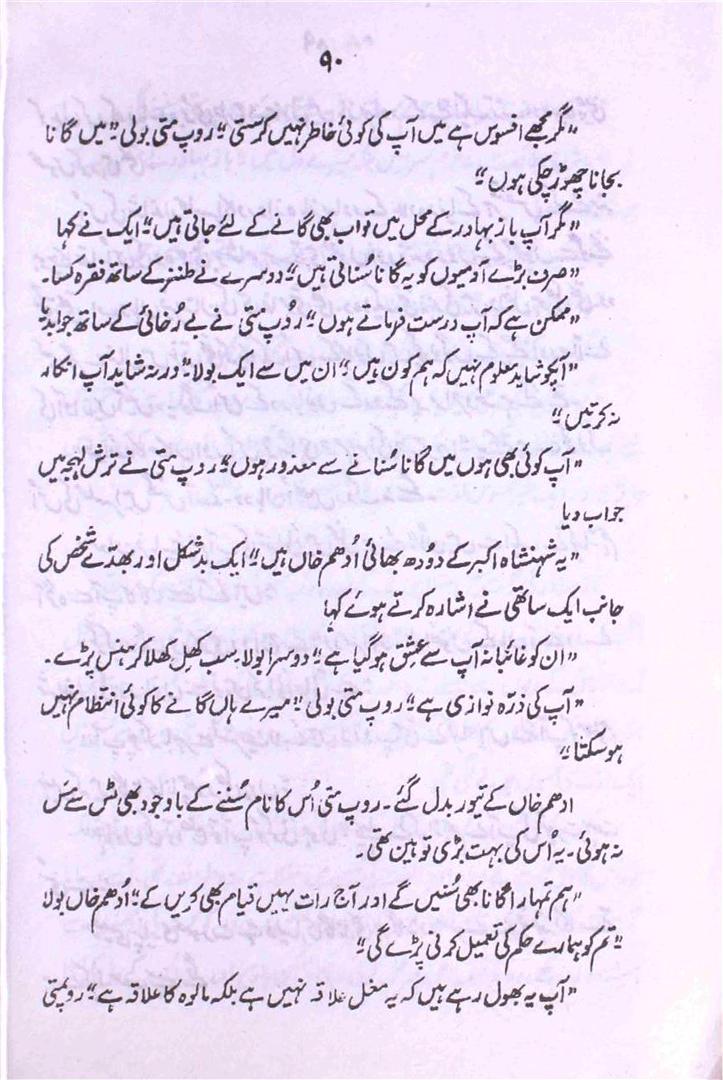 ۹۰
"مگر مجھے افسوس ہے میں آپ کی کوئی خاطر نہیں کر سکتی" روپ متی بولی "میں گانا
بجانا چھوڑ چکی ہوں"
"مگر آپ باز بہادر کے محل میں تو اب بھی گانے کے لئے جاتی ہیں" ایک نے کہا
"صرف بڑے آدمیوں کو یہ گانا سُناتی ہیں" دوسرے نے طنز کے ساتھ فقرہ کسا۔
"ممکن ہے کہ آپ درست فرماتے ہوں" رُوپ متی نے بے رُخائی کے ساتھ جواب دیا
"آپکو شاید معلوم نہیں کہ ہم کون ہیں" ان میں سے ایک بولا "ورنہ شاید آپ انکار
نہ کرتیں"
"آپ کوئی بھی ہوں میں گانا سُنانے سے معذور ہوں" روپ متی نے تُرش لہجہ میں
جواب دیا
"یہ شہنشاہ اکبر کے دودھ بھائی اُدھم خاں ہیں" ایک بدشکل اور بھدے شخص کی
جانب ایک ساتھی نے اشارہ کرتے ہوئے کہا
"ان کو غائبانہ آپ سے عشق ہو گیا ہے" دوسرا بولا سب کھِل کھلا کر ہنس پڑے۔
"آپ کی ذرّہ نوازی ہے" روپ متی بولی "میرے ہاں گانے کا کوئی انتظام نہیں
ہو سکتا"
ادھم خاں کے تیور بدل گئے۔ روپ متی اُس کا نام سُننے کے باوجود بھی ٹس سے مَس
نہ ہوئی۔ یہ اُس کی بہت بڑی توہین تھی۔
"ہم تمہارا گانا بھی سُنیں گے اور آج رات یہیں قیام بھی کریں گے" اُدھم خاں بولا
"تم کو ہمارے حکم کی تعمیل کرنی پڑے گی"
"آپ یہ بھول رہے ہیں کہ یہ مغل علاقہ نہیں ہے بلکہ مالوہ کا علاقہ ہے" روپمتی